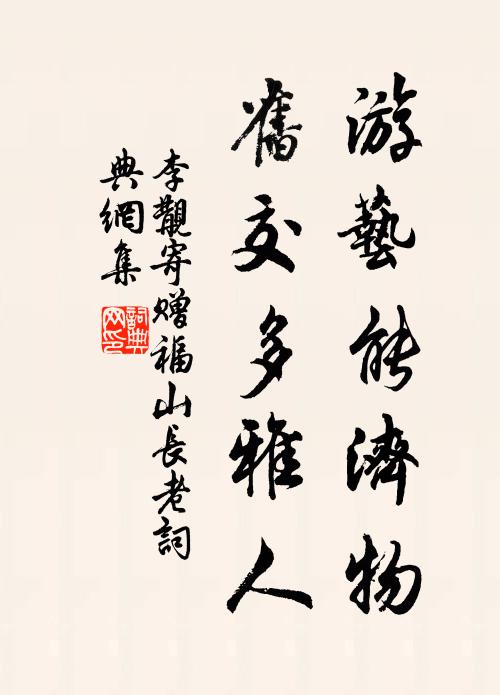 游藝能濟物
舊交多雅人
李觀寄赠福山長老詞
典網集
詞典
网印